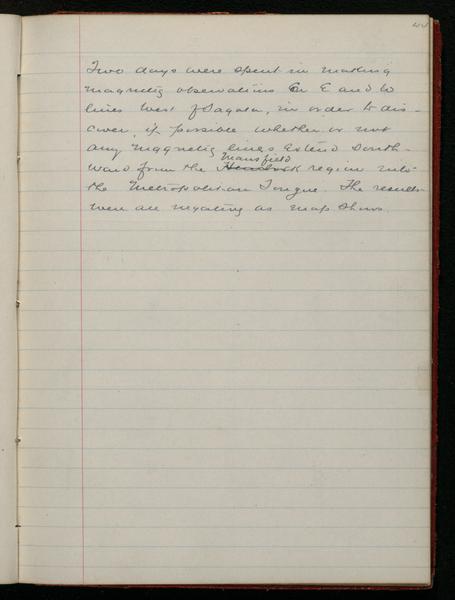 44
Two days were spent in making
magnetic observations on E and W
lines West of Sagola, in order to dis-
cover, if possible whether or not
any magnetic lines extend South-
Mansfield
ward from the region into
the Metropolitan Tongue. The results
were all negative as map shows.